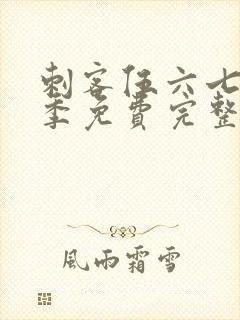 刺客伍六七
季免費完整
風雨霜雪